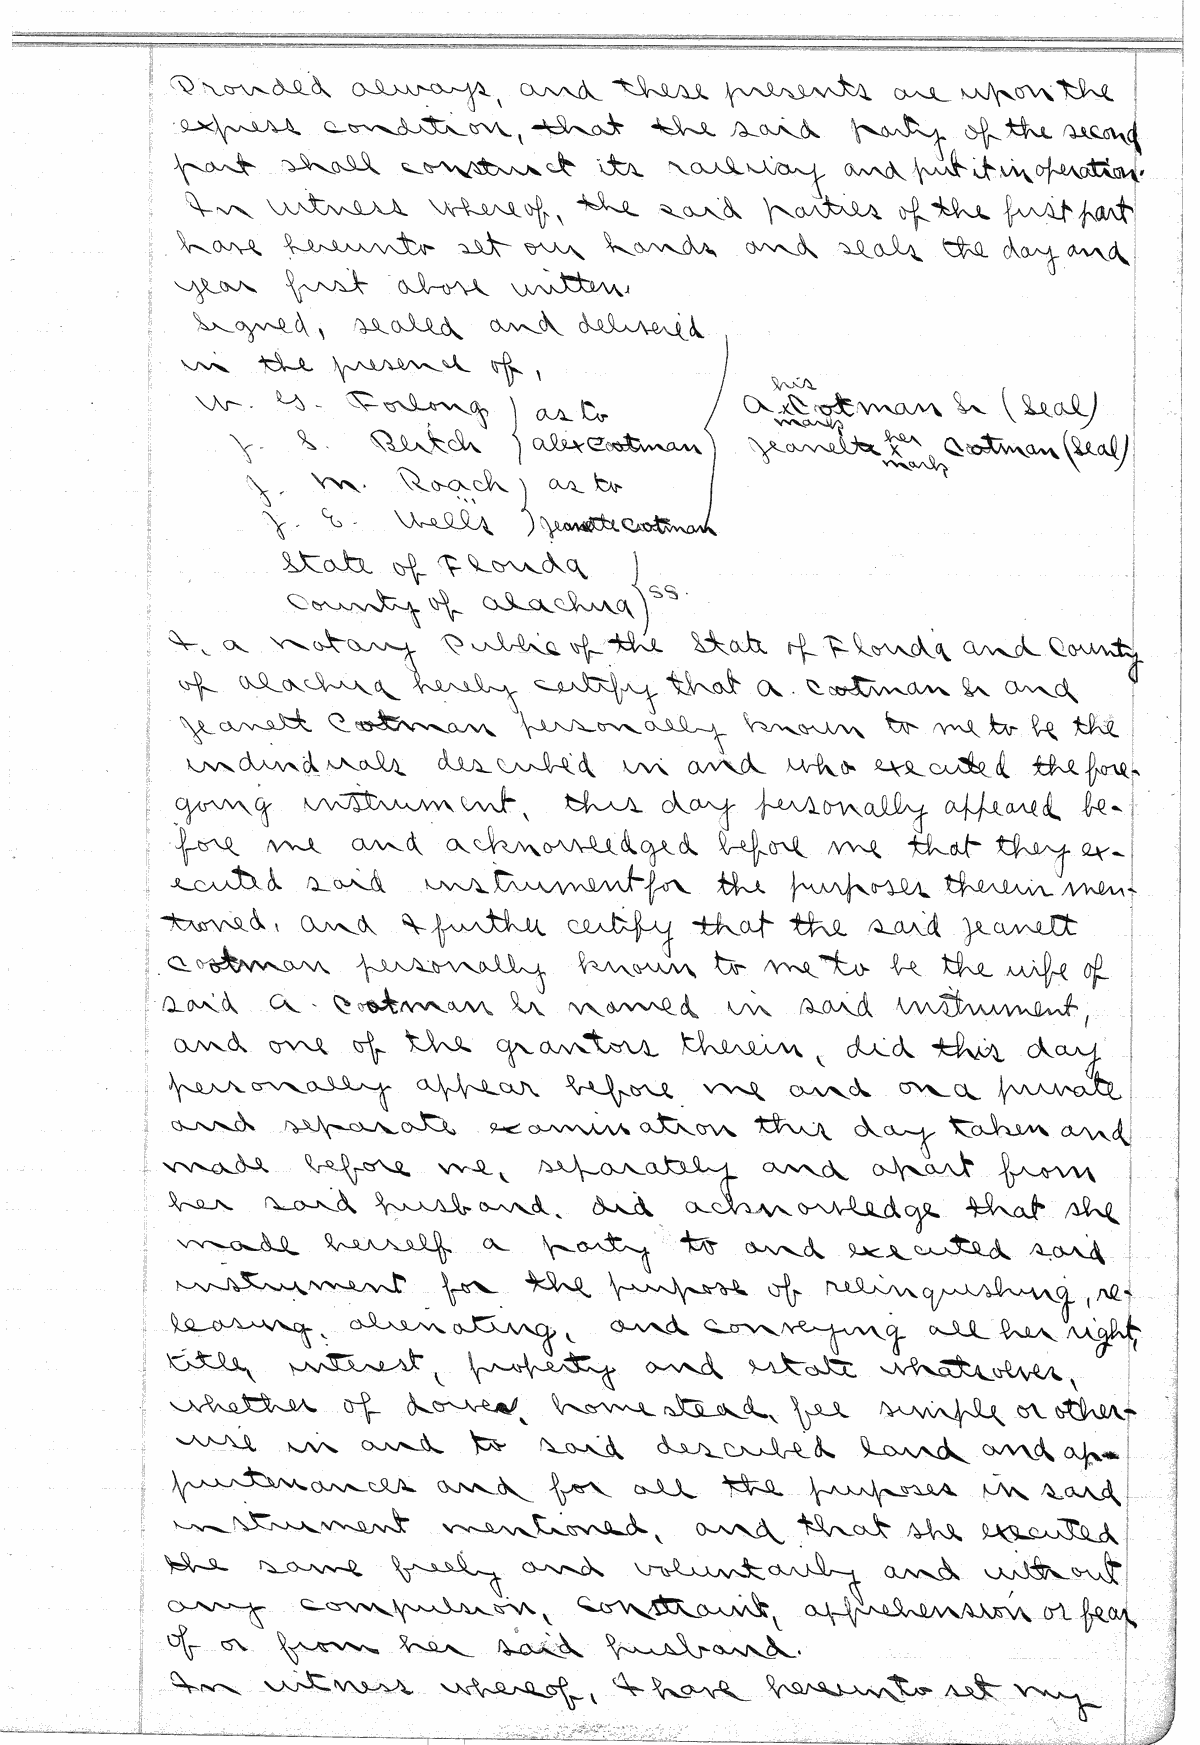 Provided always, and these presents are upon the
express condition, that the said party of the second
part shall construct its railway and put it in operation.
In witness whereof, the said parties of the first part
have hereunto set our hands and seals the day and
year first above written.
Signed, sealed and delivered
in the presencd of,
W. G. Forlong ) as to
J. S. Beitch ) alex Cootman
J. M. Roach ) as to
J. E. Wells ) Jeanette Cootman
his
A. x Cotman Sr (Seal)
mark
Jeanette her x mark Cootman (Seal)
State of Florida
County of Alachua } SS.
I, a Notary Public of the State of Florida and County
of Alachua hereby certify that A. Cootman Sr and
Jeanett Cootman personally known to me to be the
individuals described in and who executed the fore-
going instrument, this day personally appeared be-
fore me and acknowledged before me that they ex-
ecuted said instrument for the purposes therein men-
tioned, and I further certify that the said Jeanett
Cootman personally known to me to be the wife of
said A. Cootman Sr named in said instrument,
and one of the grantors therein, did this day
personally appear before me and on a private
and separate examination this day taken and
made before me, separately and apart from
her said husband. did acknowledge that she
made herself a party to and executed said
instrument for the purpose of relinquishing, re-
leasing, alienating, and conveying all her right,
title, interest, property and estate whatsoever,
whether of dower, homestead, fee simple or other-
wise in and to said described land and ap-
purtenances and for all the purposes in said
instrument mentioned, and that she executed
the same freely and voluntarily and without
any compulsion, constraint, apprehension or fear
of or from her said husband.
In witness whereof, I have hereunto set my